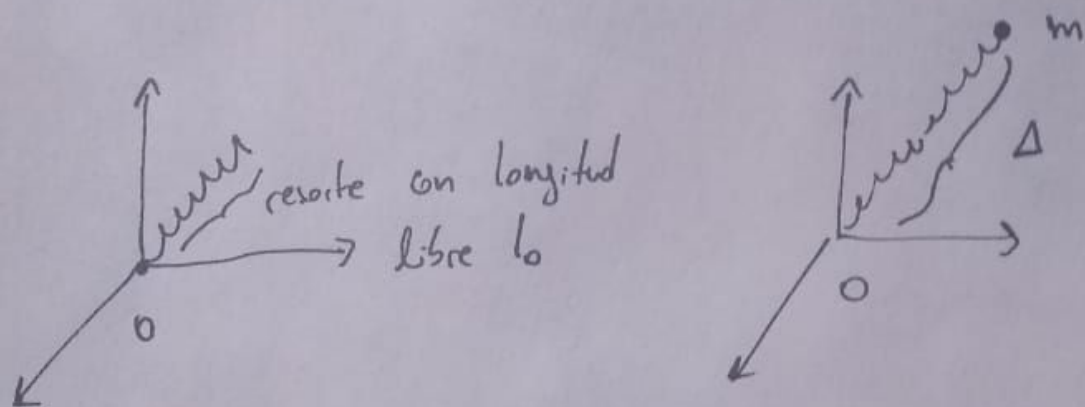 m
resorte con longitud
Δ
libre l₀
O
O